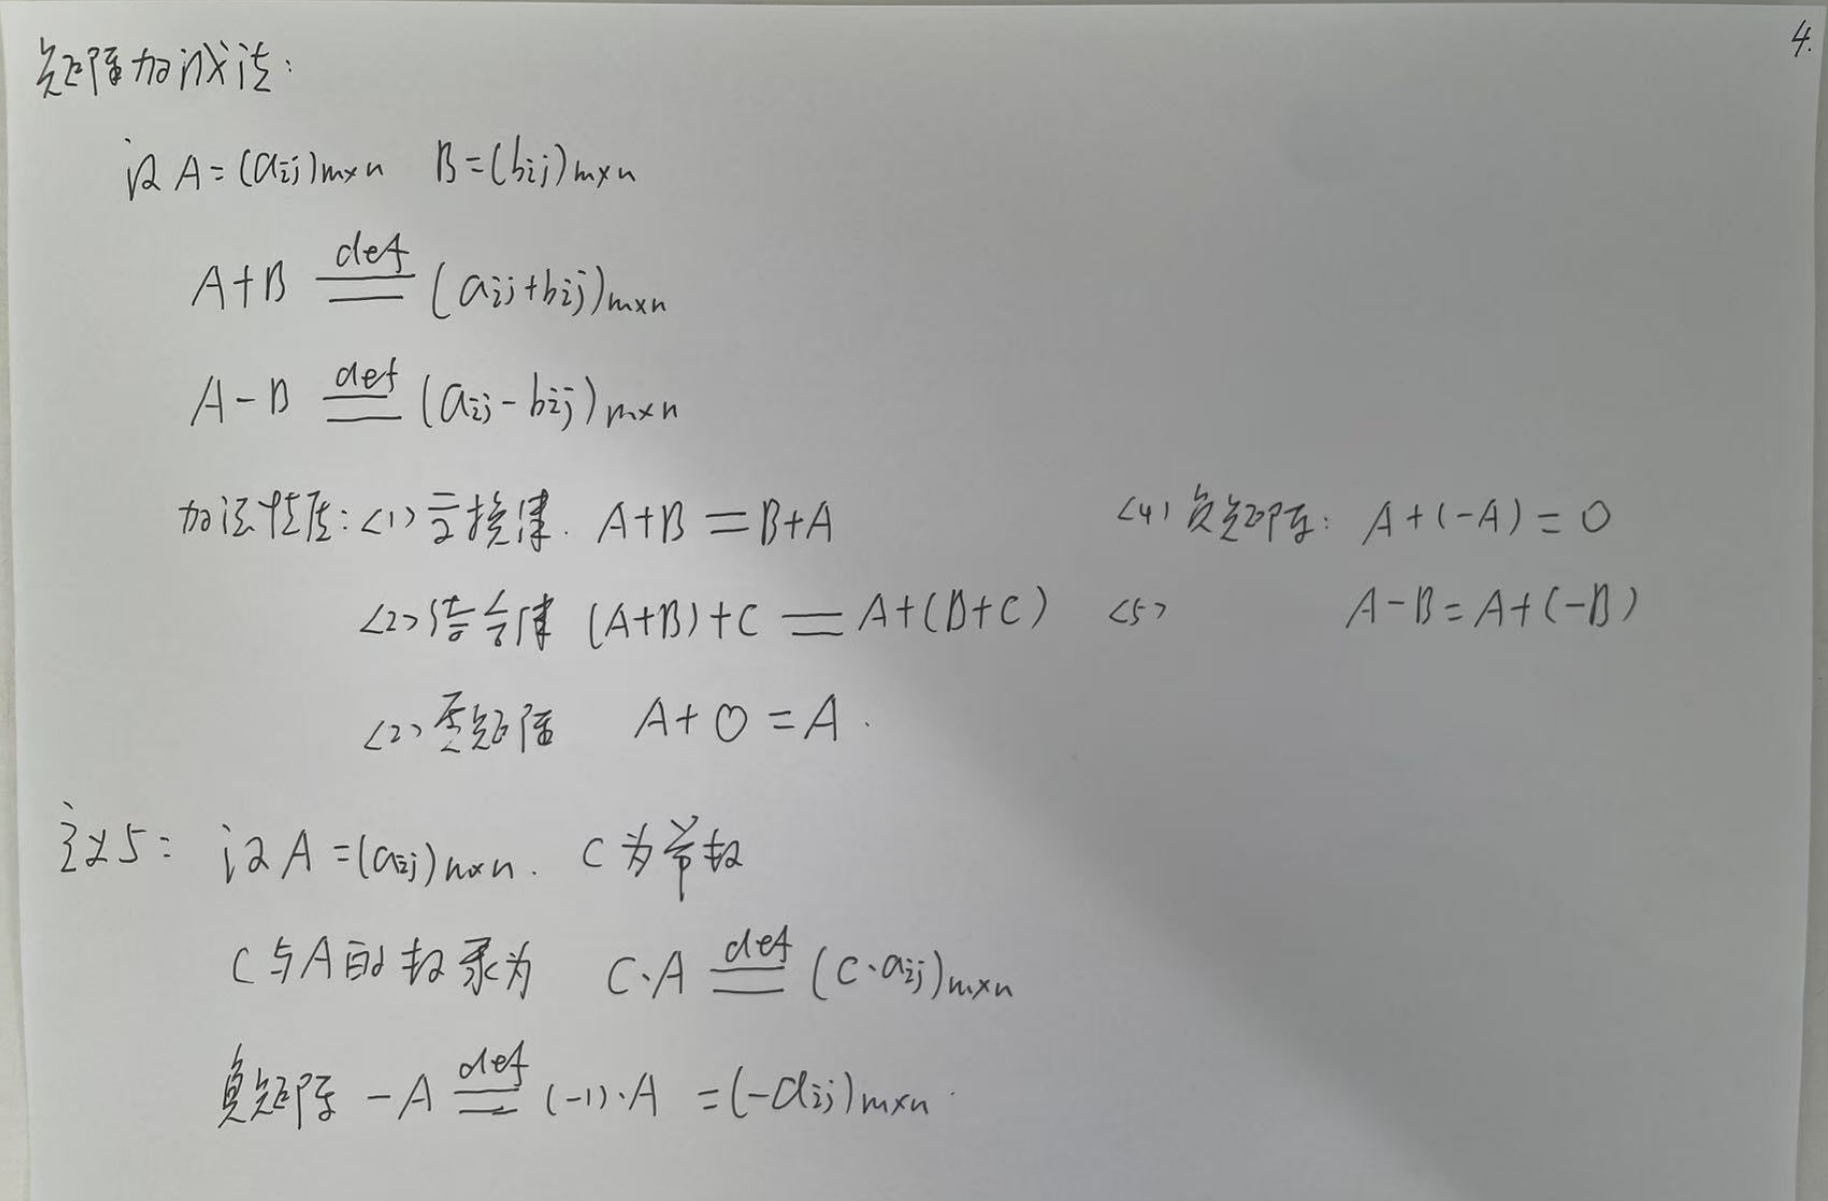 4.
矩阵加减法:
设 A=(aij)m×n B=(bij)m×n
A+B def== (aij+bij)m×n
A-B def== (aij-bij)m×n
加法性质:<1>交换律. A+B=B+A
<2>结合律 (A+B)+C=A+(B+C)
<2>零矩阵 A+O=A.
<4>负矩阵: A+(-A)=O
<5> A-B=A+(-B)
定义5: 设A=(aij)m×n. C为常数
C与A的数乘为 C·A def== (C·aij)m×n
负矩阵 -A def== (-1)·A =(-aij)m×n.